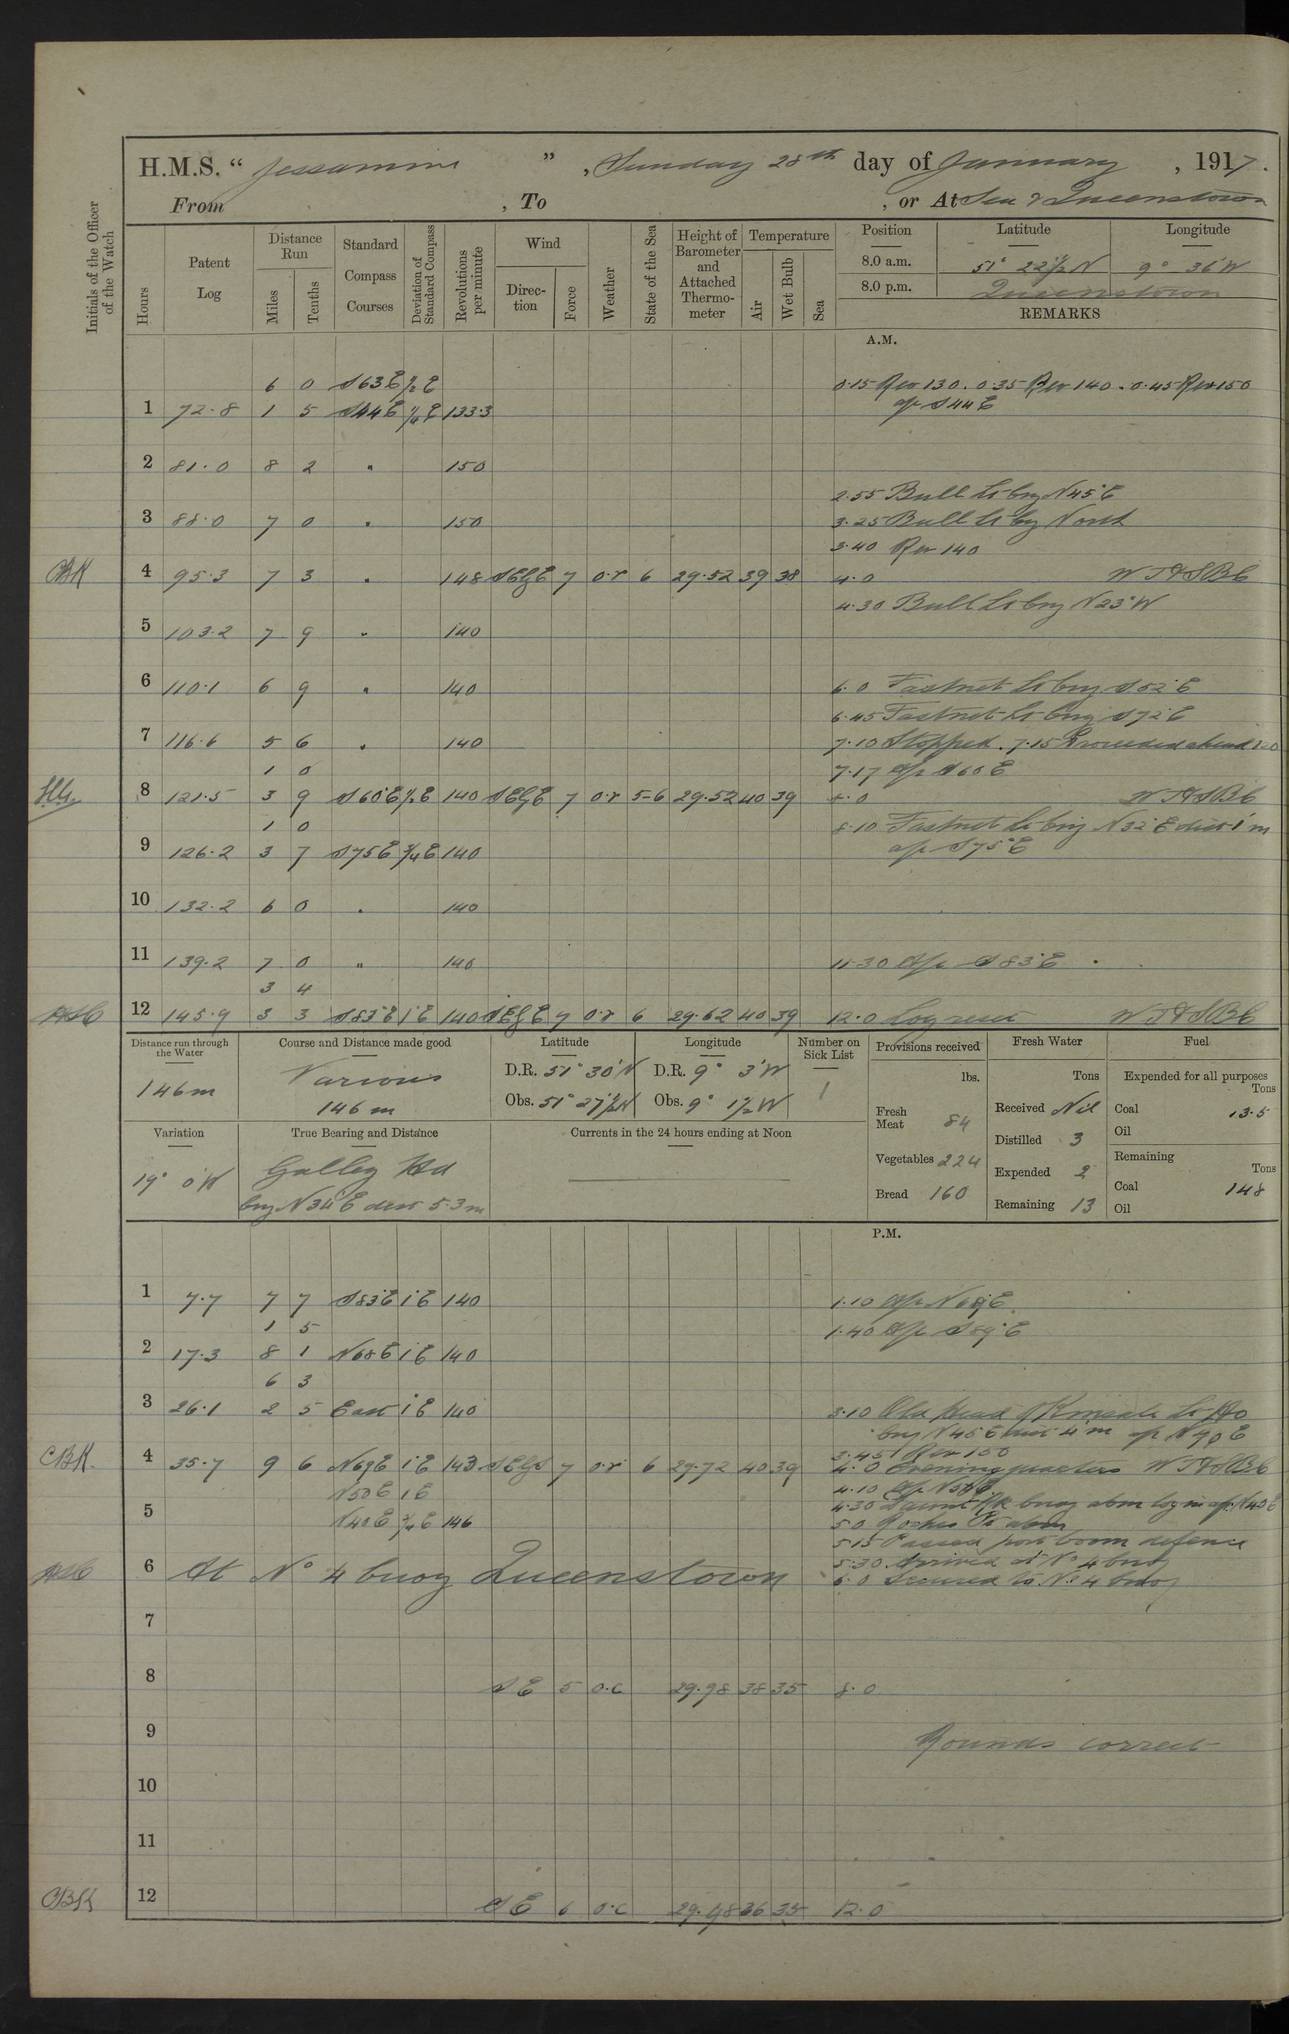 H.M.S. “ Jessamine ”, Sunday 28th day of January, 1917.
From , To , or At Sea & Queenstown
Initials of the Officer of the Watch
Hours
Patent Log
Distance Run
Miles
Tenths
Standard Compass Courses
Deviation of Standard Compass
Revolutions per minute
Wind
Direction
Force
Weather
State of the Sea
Height of Barometer and Attached Thermometer
Temperature
Air
Wet Bulb
Sea
Position Latitude Longitude
8.0 a.m. 51° 22½ N 9° 36' W
8.0 p.m. Queenstown
REMARKS
A.M.
6 0 S63E ½E 0.15 Rev 130. 0.35 Rev 140. 0.45 Rev 150
1 72.8 1 5 S44E ¼E 133.3 a/c S44E
2 81.0 8 2 " 150
2.55 Bull Lt brg N45°E
3 88.0 7 0 " 150 3.25 Bull Lt brg North
3.40 Rev 140
CBK 4 95.3 7 3 " 148 SEbE 7 o.r 6 29.52 39 38 4.0 WT&SBC
4.30 Bull Lt brg N23°W
5 103.2 7 9 " 140
6 110.1 6 9 " 140 6.0 Fastnet Lt brg S52°E
6.45 Fastnet Lt brg S72°E
7 116.6 5 6 " 140 7.10 Stopped. 7.15 Proceeded ahead
1 0 7.17 a/c S60E
8 121.5 3 9 S60°E ½E 140 SEbE 7 o.r 5-6 29.52 40 39 8.0 WT&SBC
1 0 8.10 Fastnet Lt brg N32°E dist 1' m
9 126.2 3 7 S75E ¾E 140 a/c S75°E
10 132.2 6 0 " 140
11 139.2 7 0 " 140 11.30 a/c S83°E
3 4
12 145.9 3 3 S83°E 1°E 140 SEbE 7 o.r 6 29.62 40 39 12.0 Log reset WT&SBC
Distance run through the Water
146m
Course and Distance made good
Various
146 m
Latitude
D.R. 51° 30' N
Obs. 51° 27½ N
Longitude
D.R. 9° 3' W
Obs. 9° 1½ W
Number on Sick List
1
Provisions received
lbs.
Fresh Meat 84
Vegetables 224
Bread 160
Fresh Water
Tons
Received Nil
Distilled 3
Expended 2
Remaining 13
Fuel
Expended for all purposes
Tons
Coal 13.5
Oil
Remaining
Tons
Coal 148
Oil
Variation
19° 0' W
True Bearing and Distance
Galley Hd
brg N34°E dist 5.3m
Currents in the 24 hours ending at Noon
P.M.
1 7.7 7 7 S83°E 1°E 140 1.10 a/c N69°E
1 5 1.40 a/c S89°E
2 17.3 8 1 N68E 1°E 140
6 3
3 26.1 2 5 East 1°E 140 3.10 Old Head of Kinsale Lt Ho
brg N45°E dist 4' m a/c N70E
3.45 Rev 150
CBK. 4 35.7 9 6 N69E 1°E 143 SEbS 7 o.r 6 29.72 40 39 4.0 Evening quarters WT&SBC
N50E 1E 4.10 a/c
4.30 Daunt Rk buoy abm log in a/c N40E
5 N40E ¾E 146 5.0 Roches Pt abm
5.15 Passed port boom defence
5.30 Arrived at No 4 buoy
6 At No 4 buoy Queenstown 6.0 Secured to No 4 buoy
7
8 SE 5 o.c 29.98 38 35 8.0
9 Rounds correct
10
11
CBK 12 SE 6 o.c 29.98 36 35 12.0